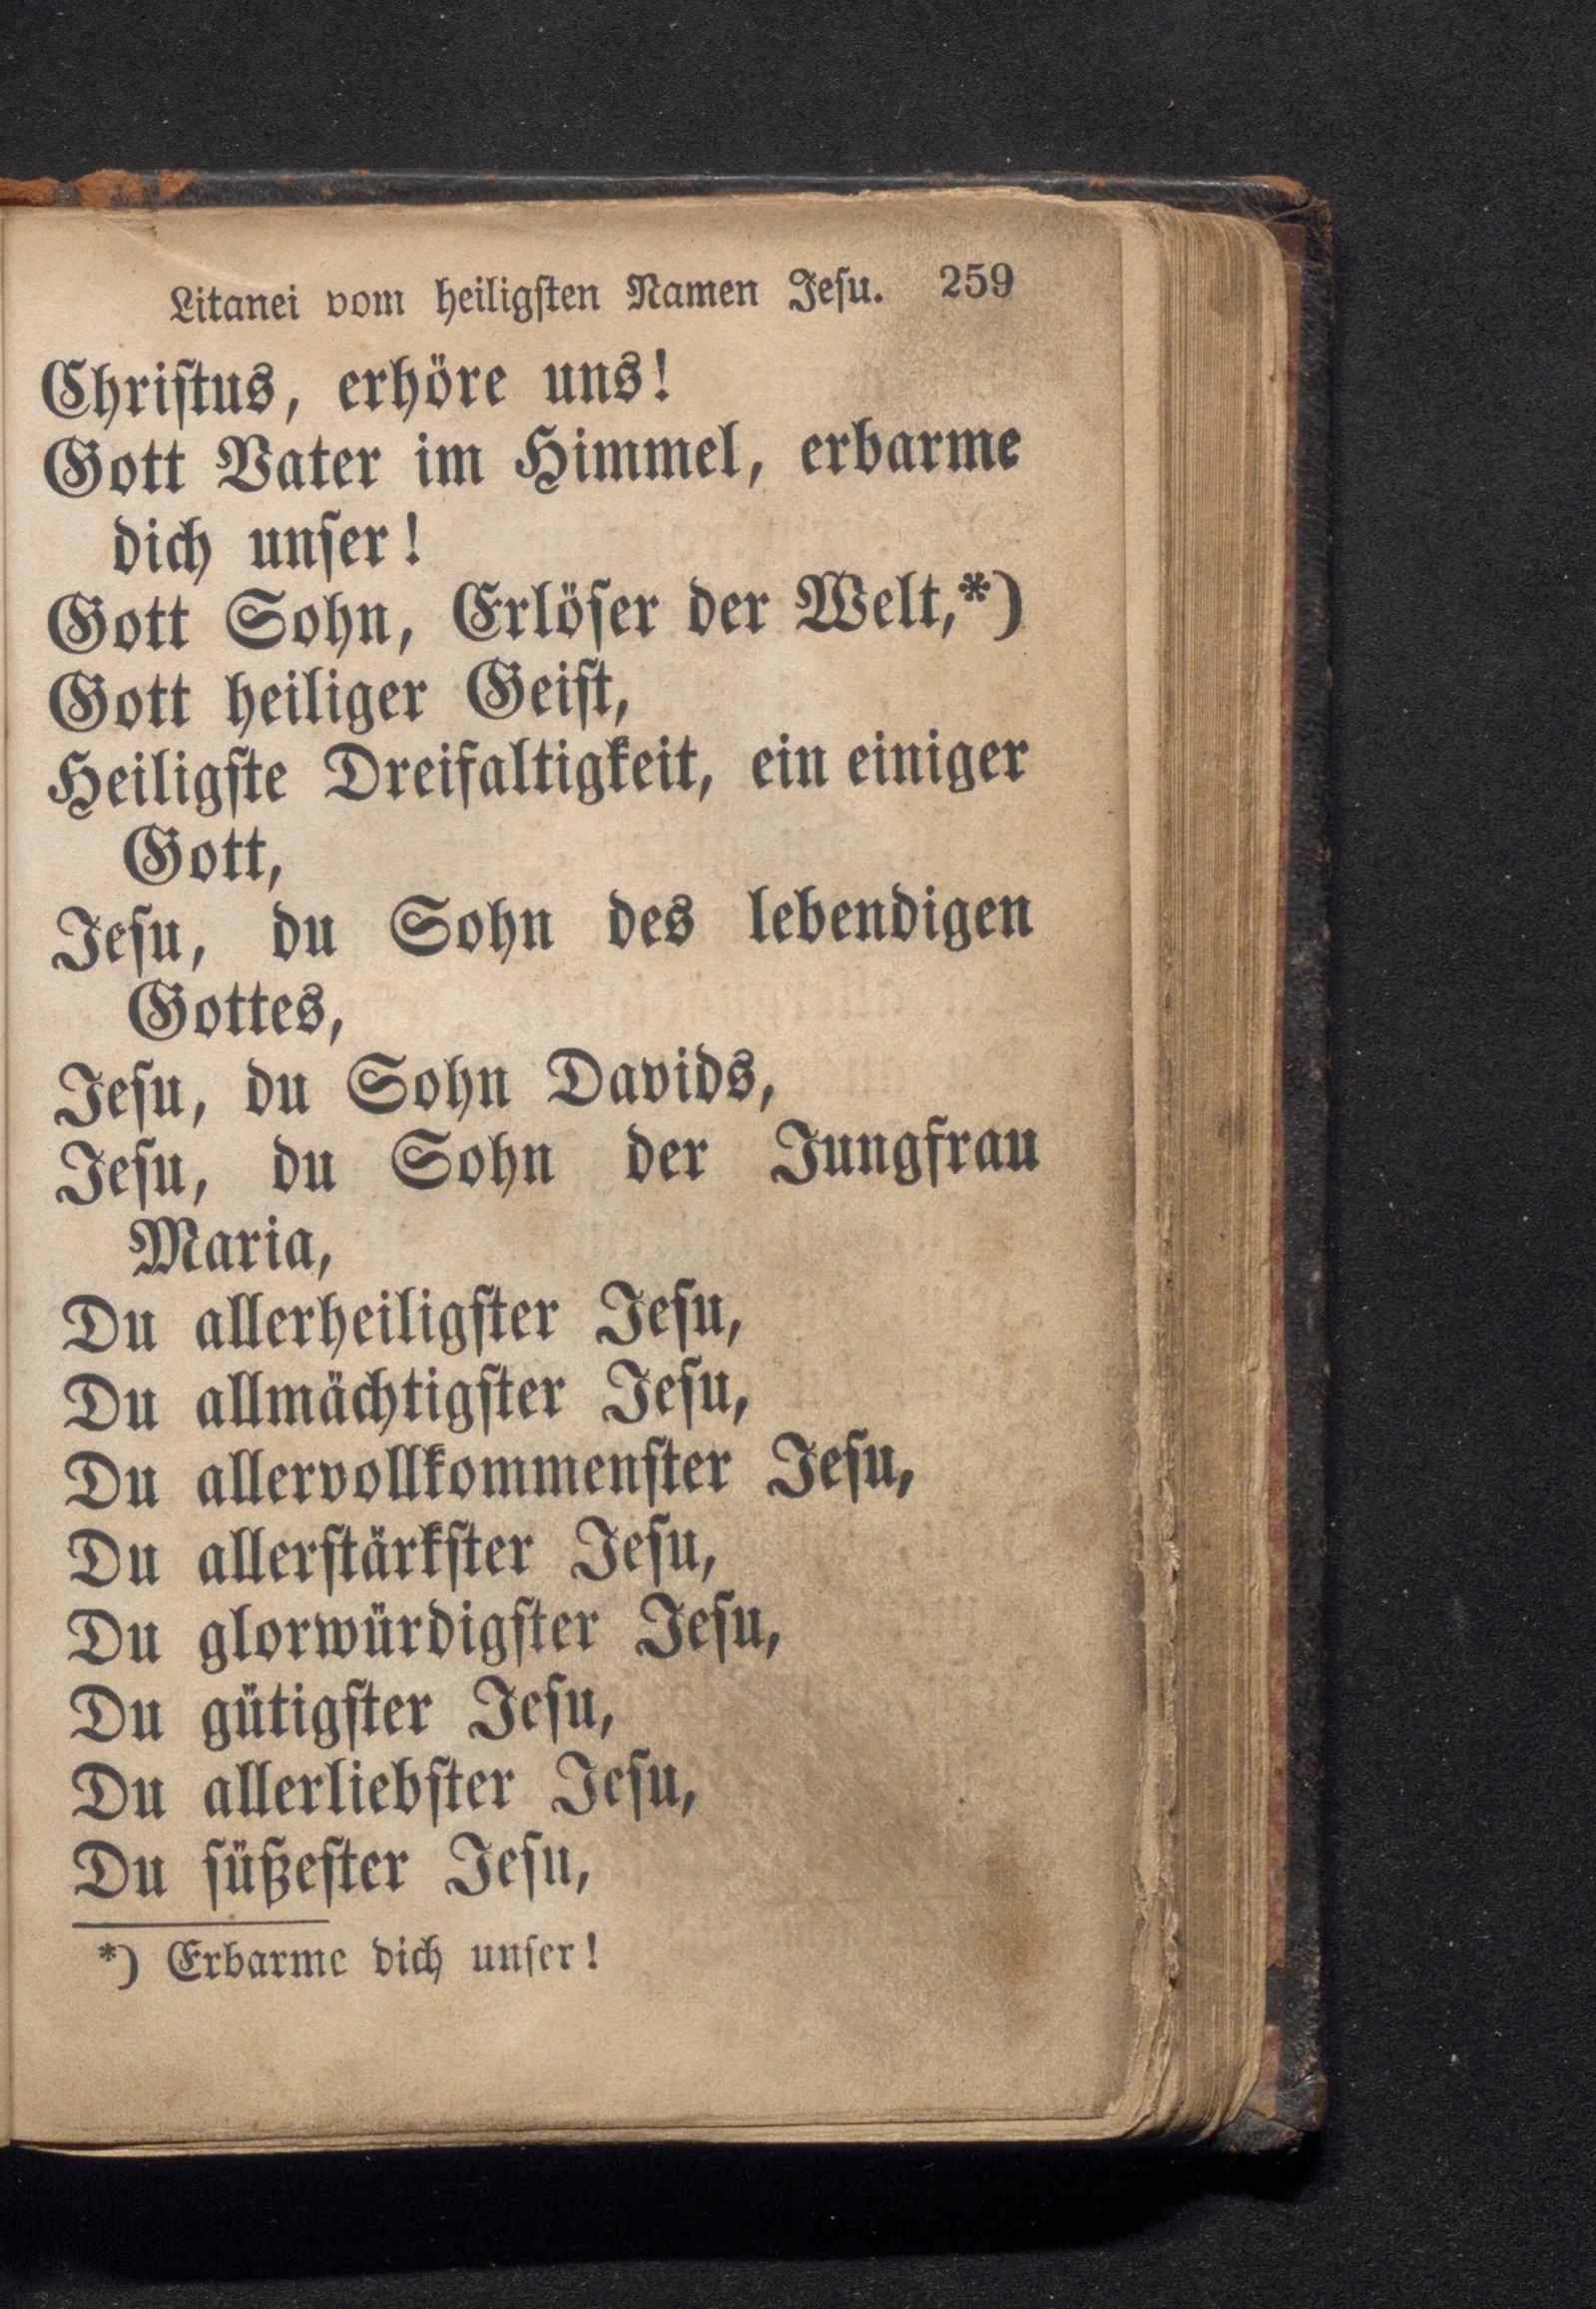 Litanei vom heiligſten Namen Jeſu. 259
Chriſtus, erhöre uns!
Gott Vater im Himmel, erbarme
dich unſer!
Gott Sohn, Erlöſer der Welt,*)
Gott heiliger Geiſt,
Heiligſte Dreifaltigkeit, ein einiger
Gott,
Jeſu, du Sohn des lebendigen
Gottes,
Jeſu, du Sohn Davids,
Jeſu, du Sohn der Jungfrau
Maria,
Du allerheiligſter Jeſu,
Du allmächtigſter Jeſu,
Du allervollkommenſter Jeſu,
Du allerſtärkſter Jeſu,
Du glorwürdigſter Jeſu,
Du gütigſter Jeſu,
Du allerliebſter Jeſu,
Du ſüßeſter Jeſu,
*) Erbarme dich unſer!